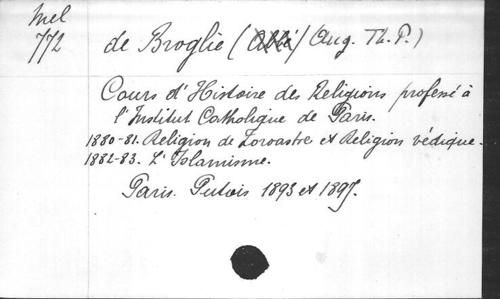 Mel
772
de Broglie (Abbé) (Aug. Th. P.)
Cours d'Histoire des Religions professé à
l'Institut Catholique de Paris.
1880-81. Religion de Zoroastre et Religion védique.
1882-83. L'Islamisme.
Paris. Putois 1893 et 1897.